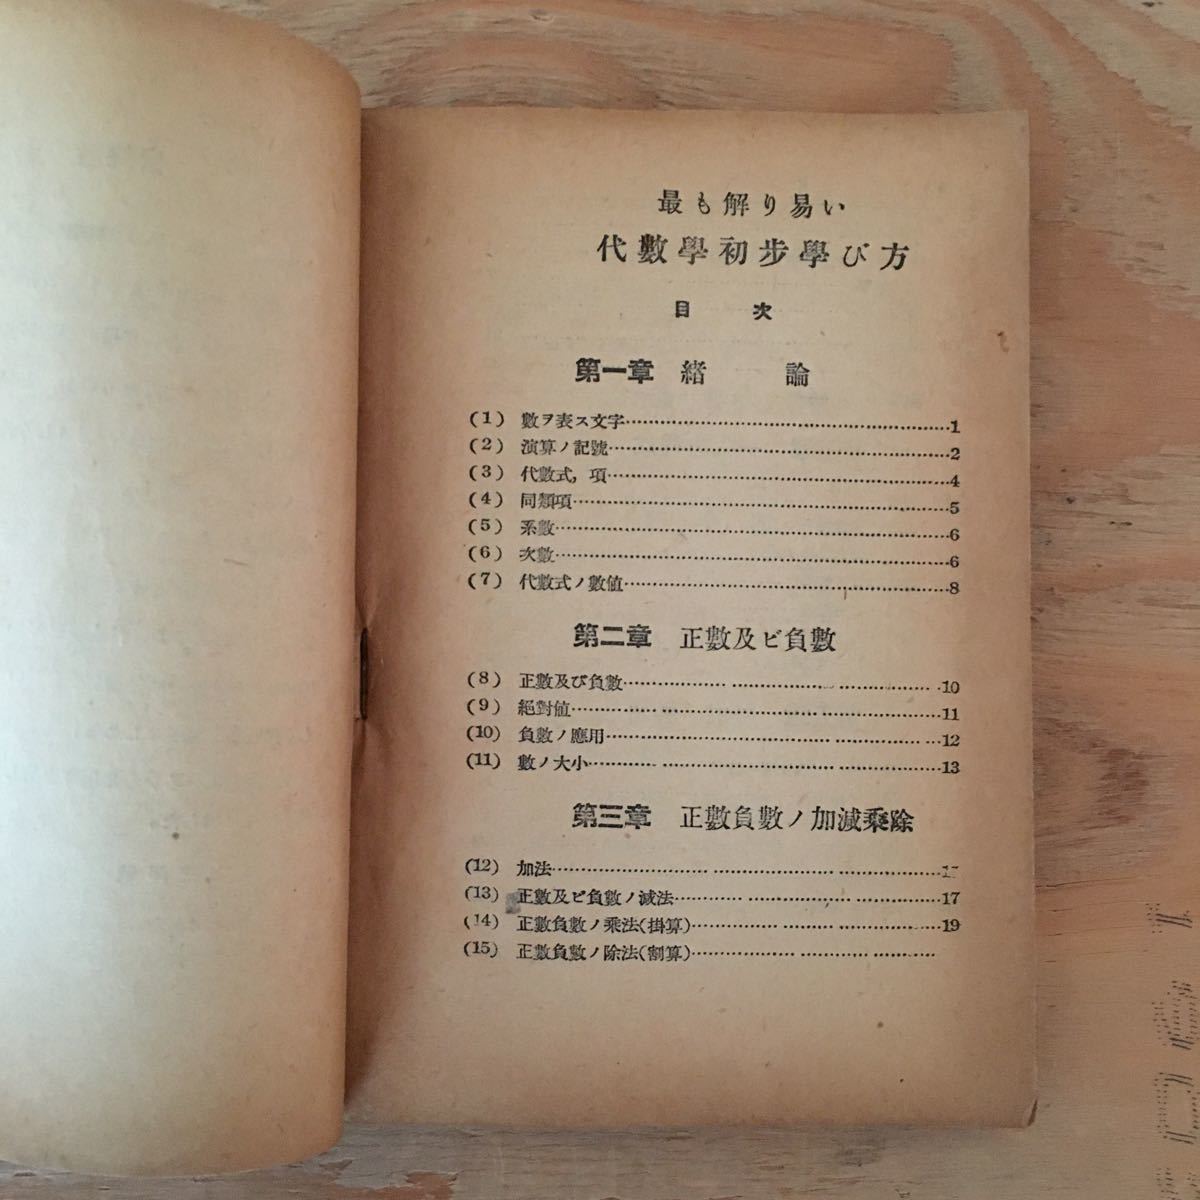 最も解り易い
代數學初步學び方
目次
第一章 緒論
(1) 數ヲ表ス文字……1
(2) 演算ノ記號……2
(3) 代數式, 項……4
(4) 同類項……5
(5) 系數……6
(6) 次數……6
(7) 代數式ノ數値……8
第二章 正數及ビ負數
(8) 正數及び負數……10
(9) 絕對値……11
(10) 負數ノ應用……12
(11) 數ノ大小……13
第三章 正數負數ノ加減乘除
(12) 加法……
(13) 正數及ビ負數ノ減法……17
(14) 正數負數ノ乘法(掛算)……19
(15) 正數負數ノ除法(割算)……